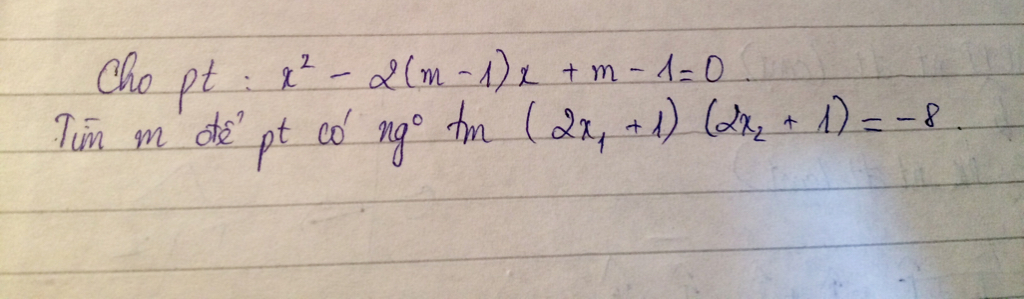 Cho pt : x² - 2(m - 1)x + m - 1 = 0.
Tìm m để pt có ngº tm (2x₁ + 1) (2x₂ + 1) = -8.